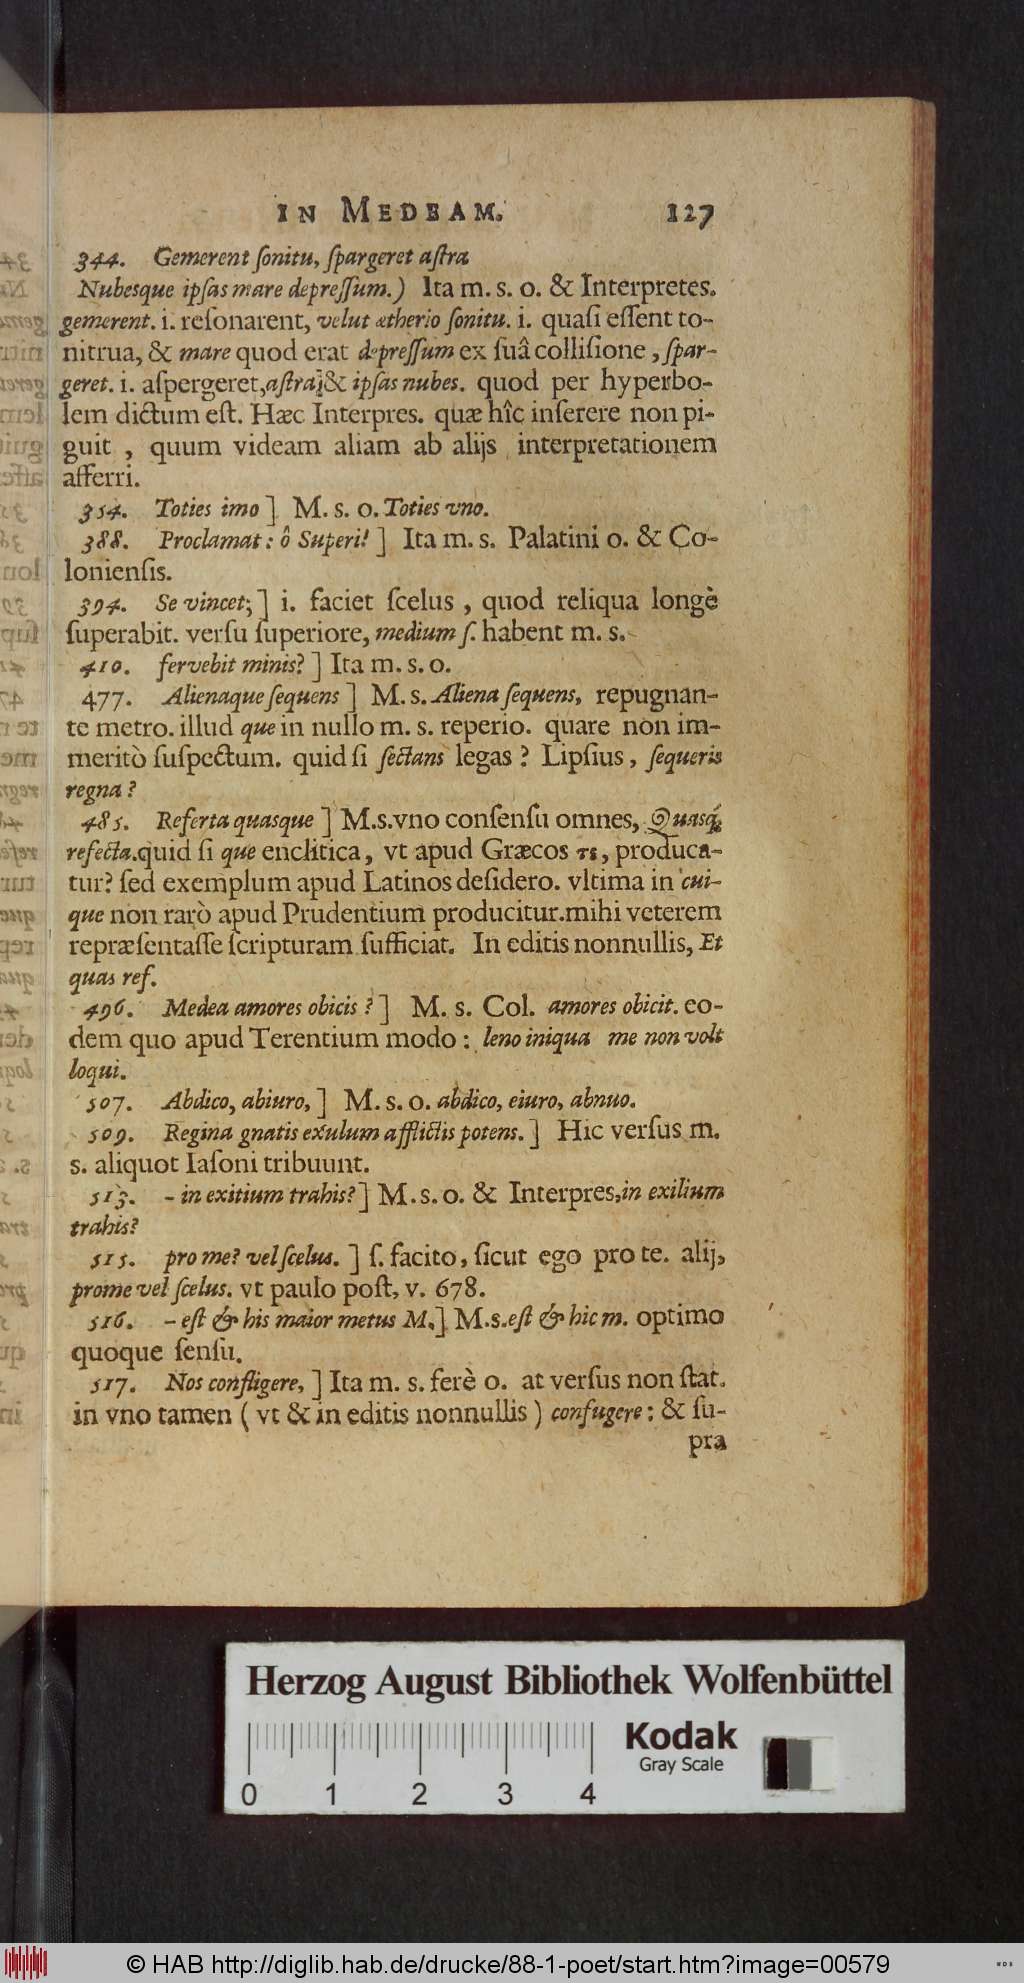 IN MEDEAM. 127
344. Gemerent ſonitu, ſpargeret aſtra
Nubesque ipſas mare depreſſum.) Ita m. s. o. & Interpretes.
gemerent. i. reſonarent, velut ætherio ſonitu. i. quaſi eſſent to-
nitrua, & mare quod erat depreſſum ex ſuâ colliſione, ſpar-
geret. i. aſpergeret, aſtra] & ipſas nubes. quod per hyperbo-
lem dictum eſt. Hæc Interpres. quæ hîc inſerere non pi-
guit, quum videam aliam ab alijs interpretationem
afferri.
354. Toties imo ] M. s. o. Toties vno.
388. Proclamat: ô Superi! ] Ita m. s. Palatini o. & Co-
lonienſis.
394. Se vincet; ] i. faciet ſcelus, quod reliqua longè
ſuperabit. verſu ſuperiore, medium ſ. habent m. s.
410. fervebit minis? ] Ita m. s. o.
477. Alienaque ſequens ] M. s. Aliena ſequens, repugnan-
te metro. illud que in nullo m. s. reperio. quare non im-
meritò ſuſpectum. quid ſi ſectans legas? Lipſius, ſequeris
regna?
485. Referta quasque ] M.s. vno conſenſu omnes, Quasq́;
refecta. quid ſi que enclitica, vt apud Græcos τε, produca-
tur? ſed exemplum apud Latinos deſidero. vltima in cui-
que non rarò apud Prudentium producitur. mihi veterem
repræſentaſſe ſcripturam ſufficiat. In editis nonnullis, Et
quas ref.
496. Medea amores obicis? ] M. s. Col. amores obicit. eo-
dem quo apud Terentium modo: leno iniqua me non volt
loqui.
507. Abdico, abiuro, ] M. s. o. abdico, eiuro, abnuo.
509. Regina gnatis exulum afflictis potens. ] Hic verſus m.
s. aliquot Iaſoni tribuunt.
513. - in exitium trahis? ] M. s. o. & Interpres, in exilium
trahis?
515. pro me? vel ſcelus. ] ſ. facito, ſicut ego pro te. alij,
pro me vel ſcelus. vt paulo poſt, v. 678.
516. - eſt & his maior metus M. ] M.s. eſt & hic m. optimo
quoque ſenſu.
517. Nos confligere, ] Ita m. s. ferè o. at verſus non ſtat.
in vno tamen ( vt & in editis nonnullis ) confugere: & ſu-
pra
Herzog August Bibliothek Wolfenbüttel
0 1 2 3 4
Kodak
Gray Scale
© HAB http://diglib.hab.de/drucke/88-1-poet/start.htm?image=00579